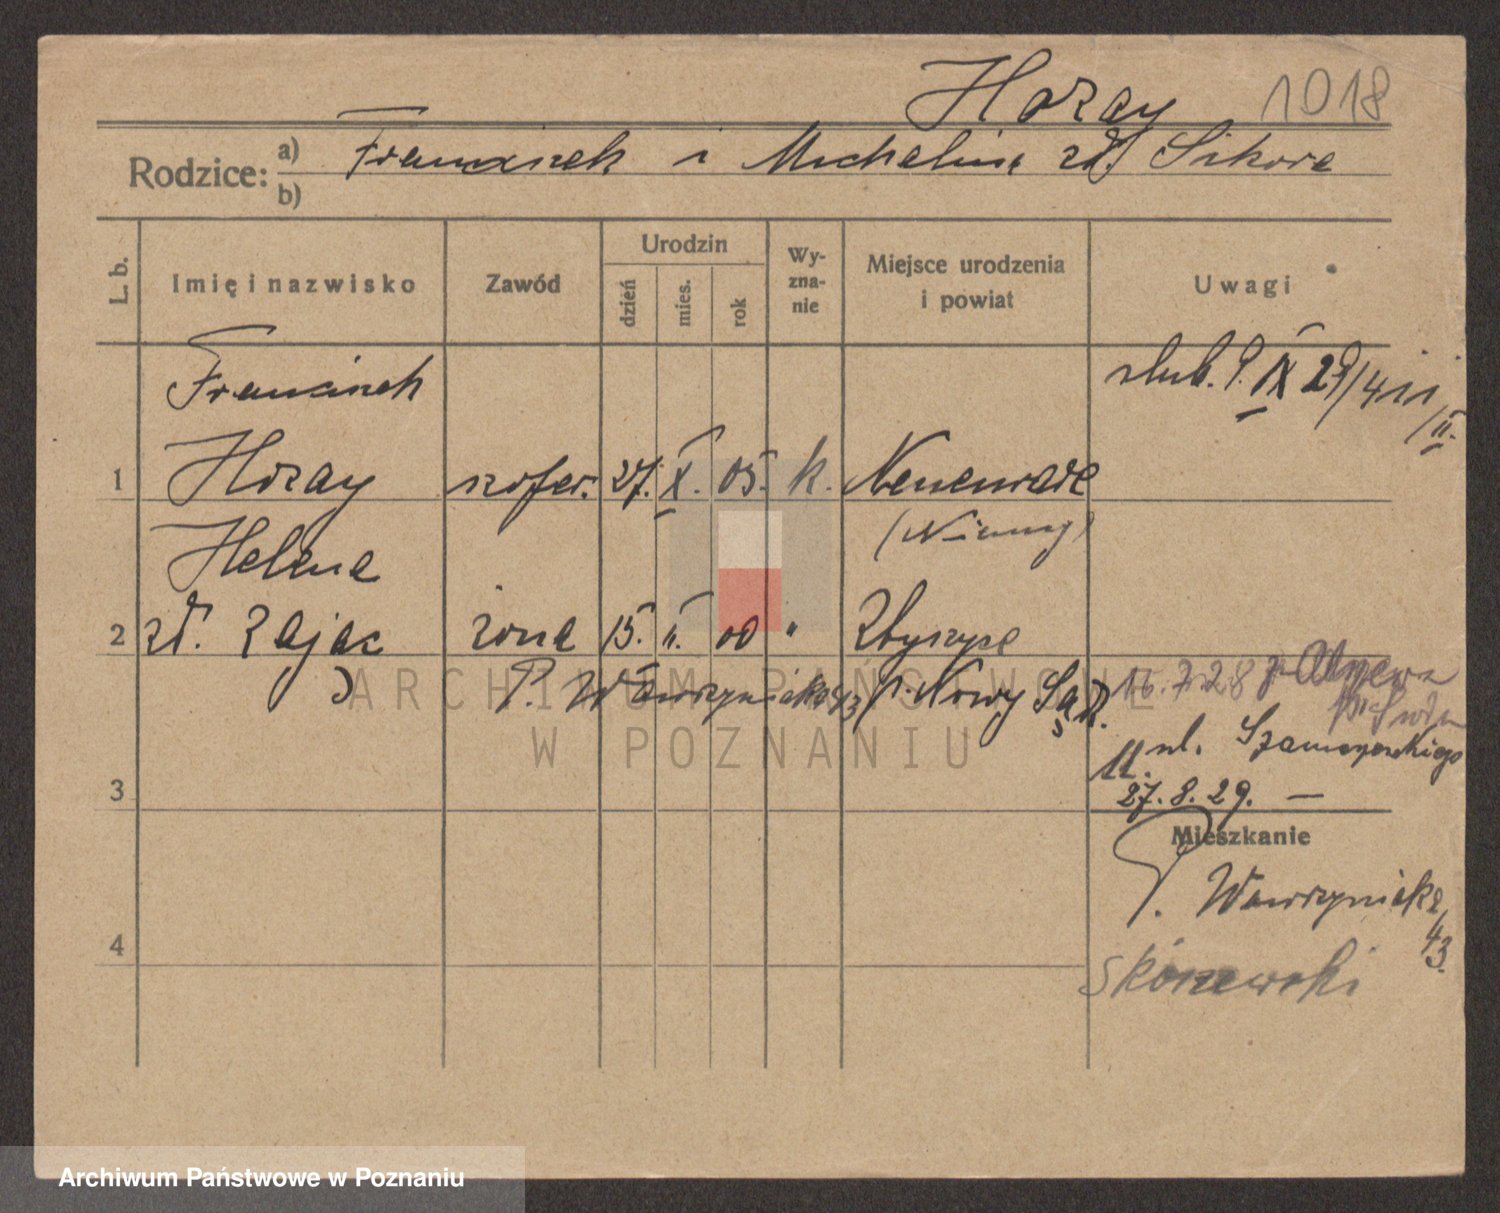 Horay 1018
Rodzice: a) Franciszek i Michalina zd. Sikora
b)
L. b. Imię i nazwisko Zawód Urodzin dzień mies. rok Wyznanie Miejsce urodzenia i powiat Uwagi
Franciszek ślub. 9. IX 29/411/II.
1 Horay szofer. 27. X. 05. k.
(Niemcy)
Helena
2 zd. Zając żona 15. II. 00 " Zbyszyce
P. Wawrzyniaka 43 p. Nowy Sącz.
16.7.28 z
11. ul. Szamarzewskiego
3 27. 8. 29. —
Mieszkanie
P. Wawrzyniaka
43.
4
Skórzewski
ARCHIWUM PAŃSTWOWE
W POZNANIU
Archiwum Państwowe w Poznaniu